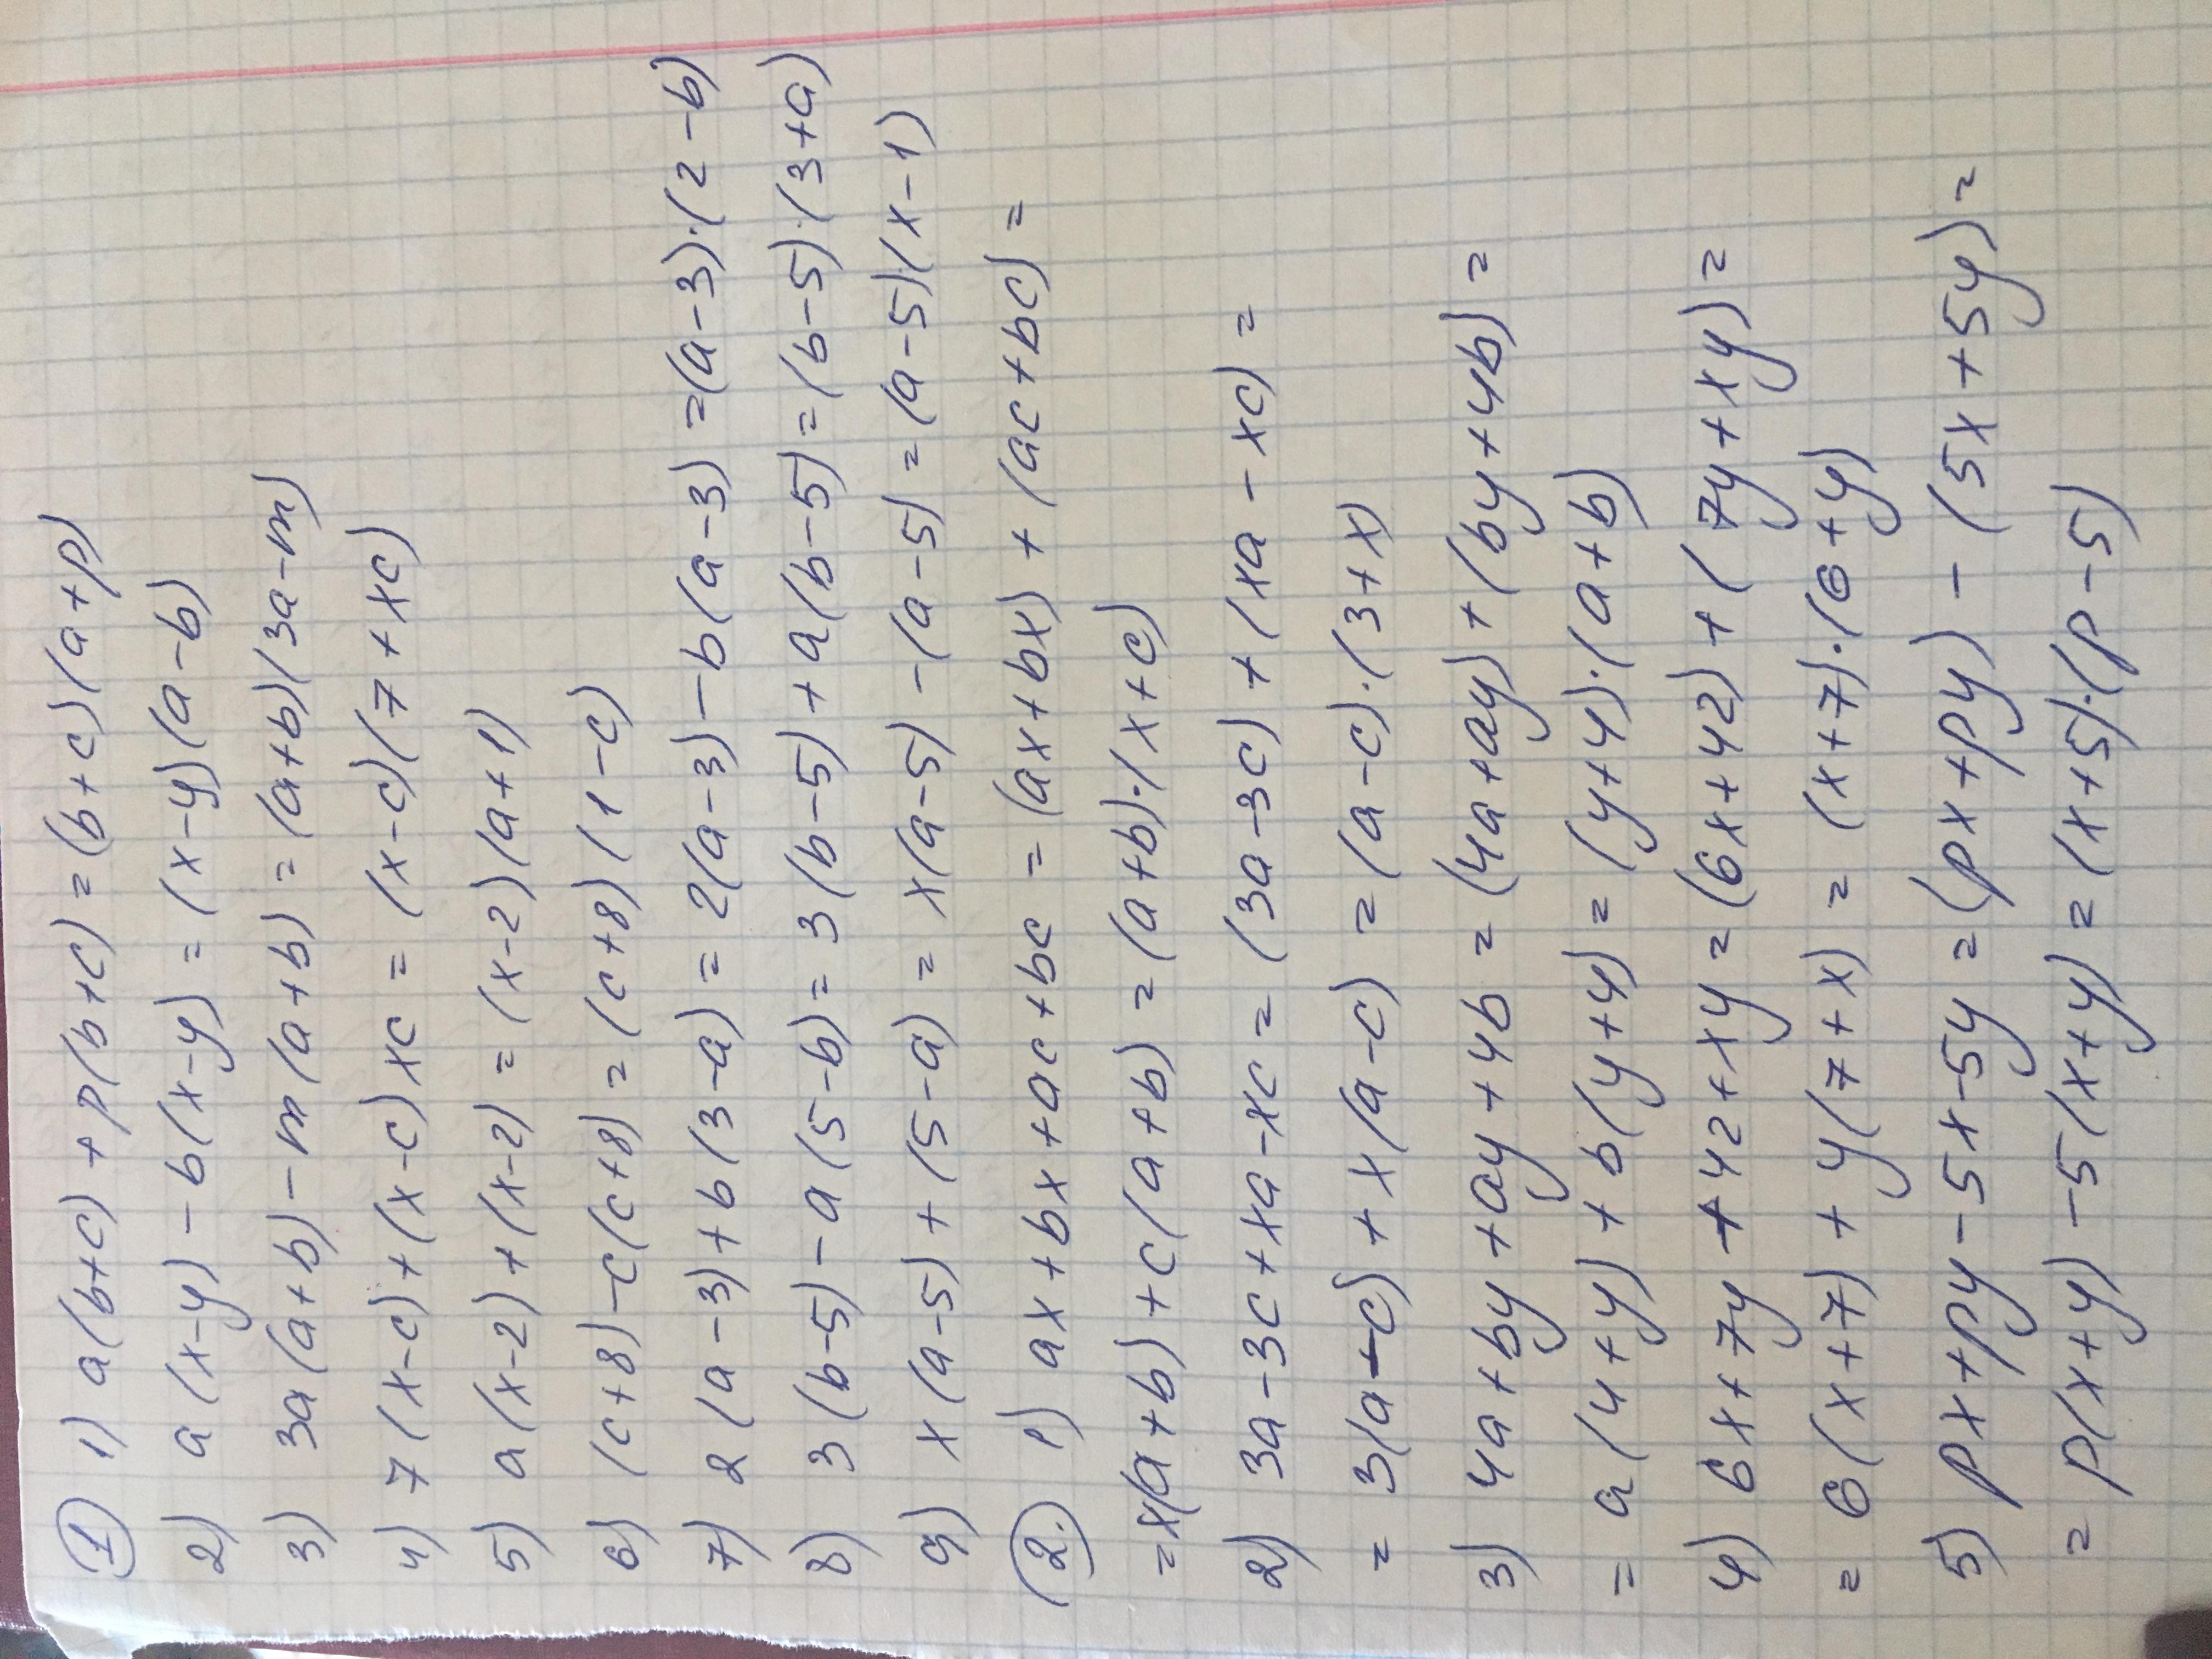 ① 1) a(b+c) + p(b+c) = (b+c)(a+p)
2) a(x-y) - b(x-y) = (x-y)(a-b)
3) 3a(a+b) - m(a+b) = (a+b)(3a-m)
4) 7(x-c) + (x-c)xc = (x-c)(7+xc)
5) a(x-2) + (x-2) = (x-2)(a+1)
6) (c+8) - c(c+8) = (c+8)(1-c)
7) 2(a-3) + b(3-a) = 2(a-3) - b(a-3) = (a-3)·(2-b)
8) 3(b-5) - a(5-b) = 3(b-5) + a(b-5) = (b-5)·(3+a)
9) x(a-5) + (5-a) = x(a-5) - (a-5) = (a-5)(x-1)
②. 1) ax + bx + ac + bc = (ax+bx) + (ac+bc) =
= x(a+b) + c(a+b) = (a+b)·(x+c)
2) 3a - 3c + xa - xc = (3a-3c) + (xa-xc) =
= 3(a-c) + x(a-c) = (a-c)·(3+x)
3) 4a + by + ay + 4b = (4a+ay) + (by+4b) =
= a(4+y) + b(y+4) = (y+4)·(a+b)
4) 6x + 7y + 42 + xy = (6x+42) + (7y+xy) =
= 6(x+7) + y(7+x) = (x+7)·(6+y)
5) px + py - 5x - 5y = (px+py) - (5x+5y) =
= p(x+y) - 5(x+y) = (x+5)·(p-5)